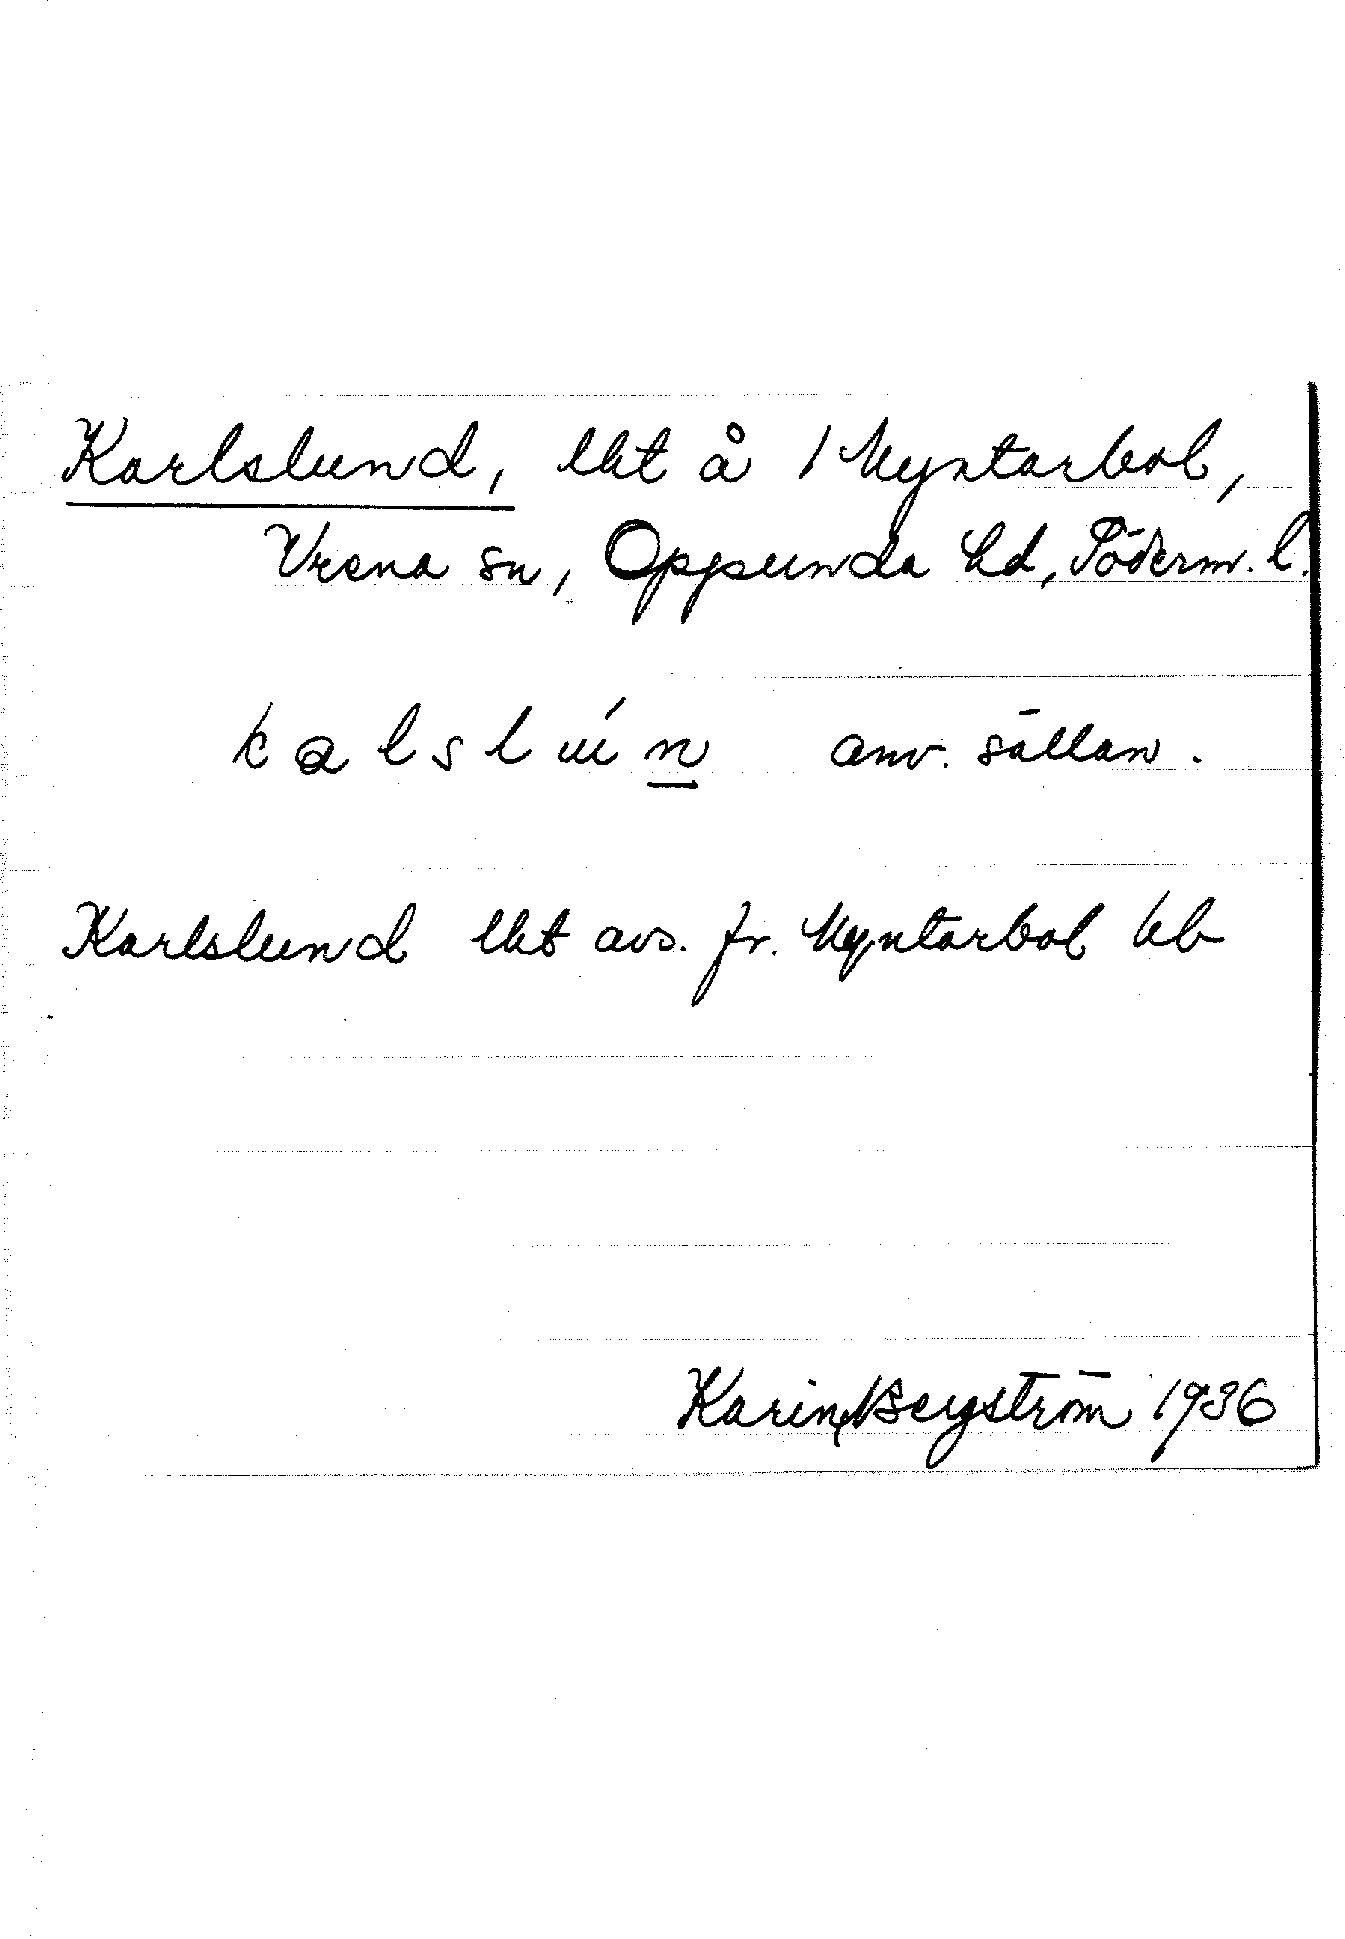 Karlslund, lht å 1 Myntarbol,
Vrena sn, Oppunda hd, Söderm. l.
kalslún anv. sällan.
Karlslund lht avs. fr. Myntarbol kb
Karin Bergström 1936